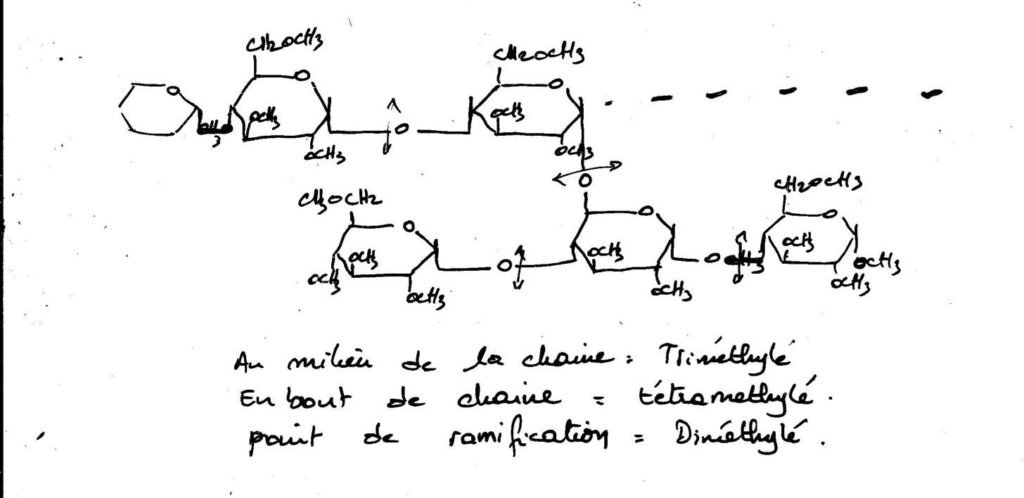 CH2OCH3 CH2OCH3
O O O
OCH3 OCH3
O
OCH3 OCH3
O
CH3OCH2 CH2OCH3
O O O
OCH3 OCH3 OCH3
OCH3 O O OCH3
OCH3 OCH3 OCH3
Au milieu de la chaine = Triméthylé
En bout de chaine = tétramethylé.
point de ramification = Diméthylé.